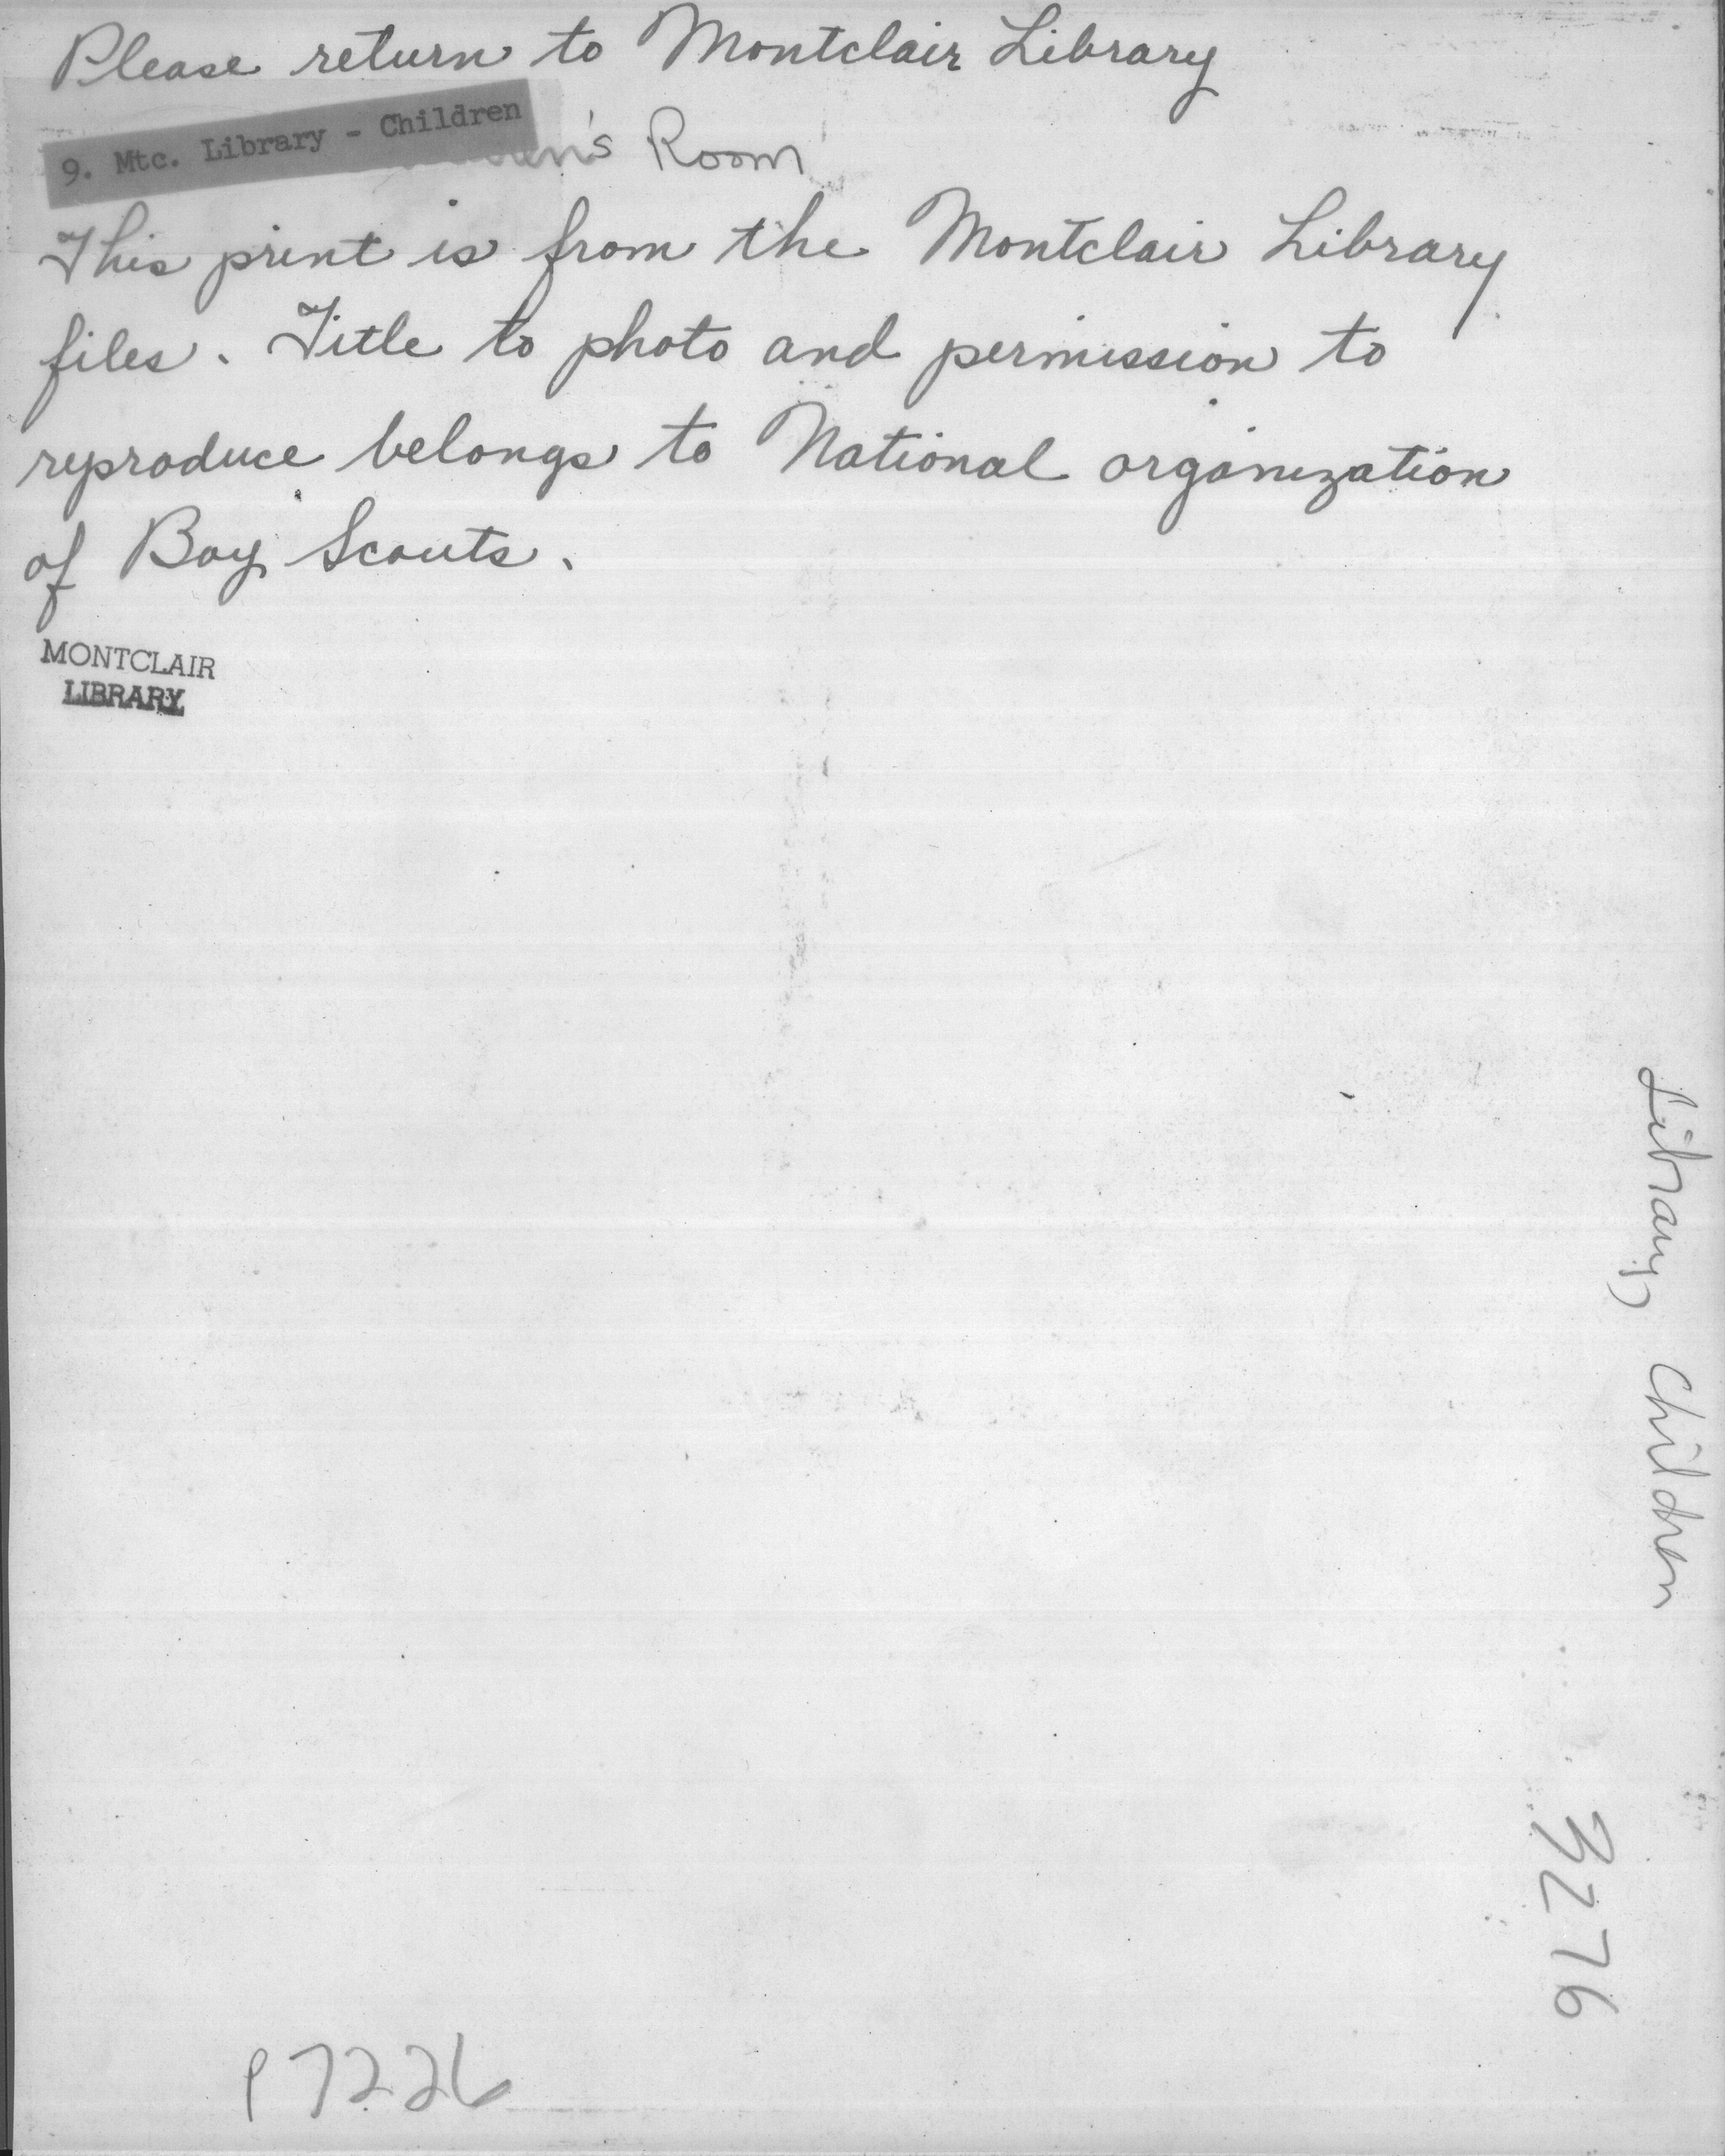 Please return to Montclair Library
9. Mtc. Library - Children
Room
This print is from the Montclair Library
files. Title to photo and permission to
reproduce belongs to National organization
of Boy Scouts.
MONTCLAIR
LIBRARY
Library, Children
3276
P7226